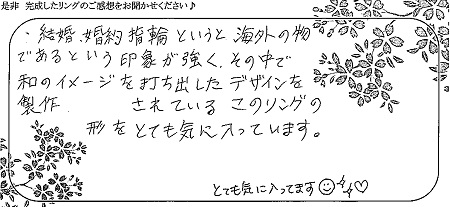 是非 完成したリングのご感想をお聞かせください♪
・結婚、婚約指輪というと海外の物
であるという印象が強く、その中で
和のイメージを打ち出したデザインを
製作 されているこのリングの
形をとても気に入っています。
とても気に入ってます